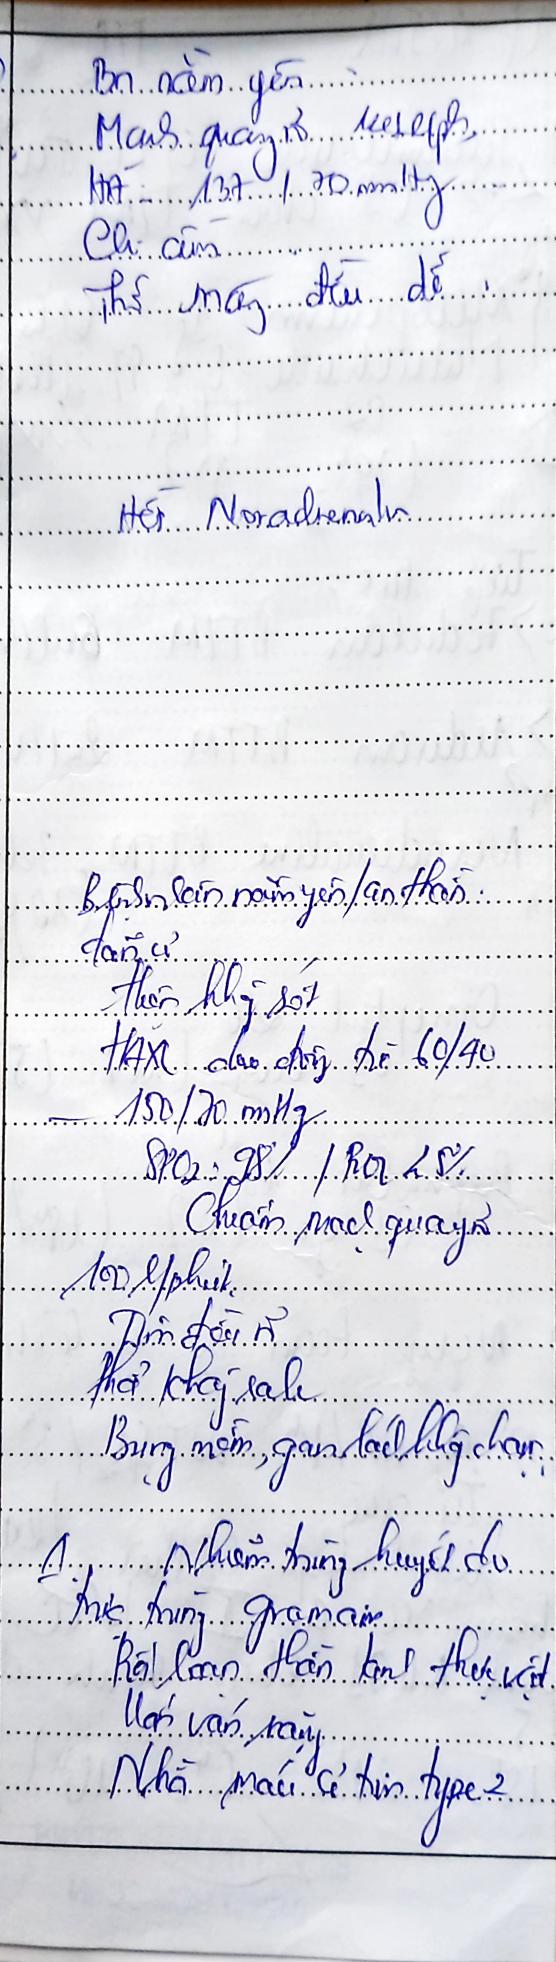 Bn nằm yên
Mạch quay rõ
HA 137 / 70 mmHg
Chi ấm
Thở máy đều dễ.
Hết Noradrenalin
Bệnh nhân nằm yên/an thần
Thân không sốt
HAXL dao động từ 60/40
— 150/70 mmHg
SPO2: 98% /
Chuẩn mạch quay rõ
100 l/phút
Tim đều rõ
Phổi không rale
Bụng mềm, gan lách không chạm
1. Nhiễm trùng huyết do
trực trùng gram âm
Rối loạn thần kinh thực vật
Uốn ván nặng
Nhồi máu cơ tim type 2